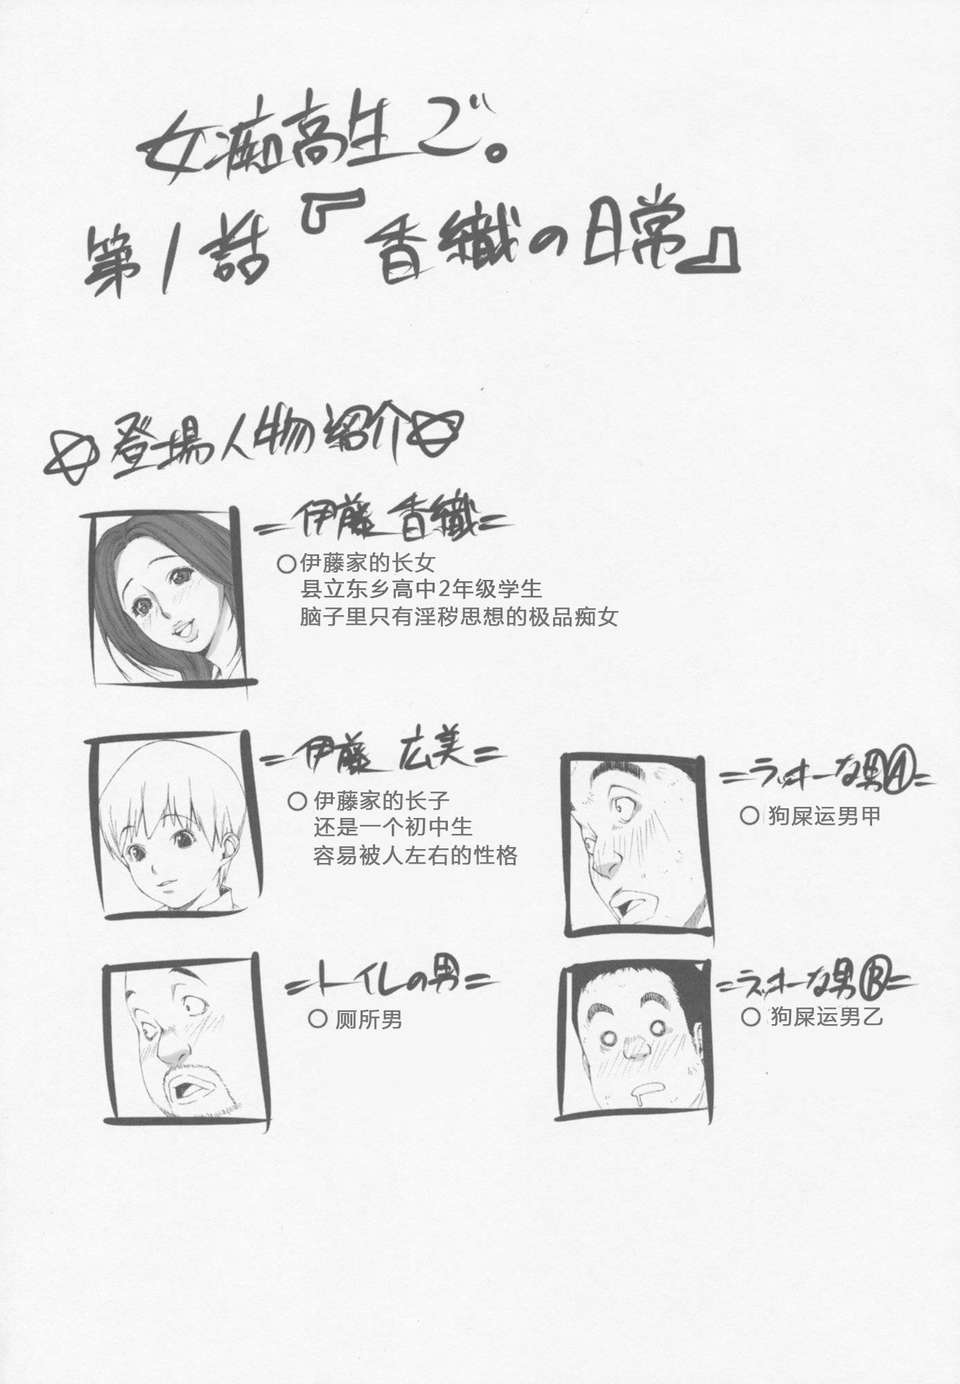 女痴高生で。
第1話『香織の日常』
☆登場人物紹介☆
=伊藤 香織=
○伊藤家的长女
县立东乡高中2年级学生
脑子里只有淫秽思想的极品痴女
=伊藤 広美=
○ 伊藤家的长子
还是一个初中生
容易被人左右的性格
=ラッキーな男Ⓐ=
○ 狗屎运男甲
=トイレの男=
○ 厕所男
=ラッキーな男Ⓑ=
○ 狗屎运男乙